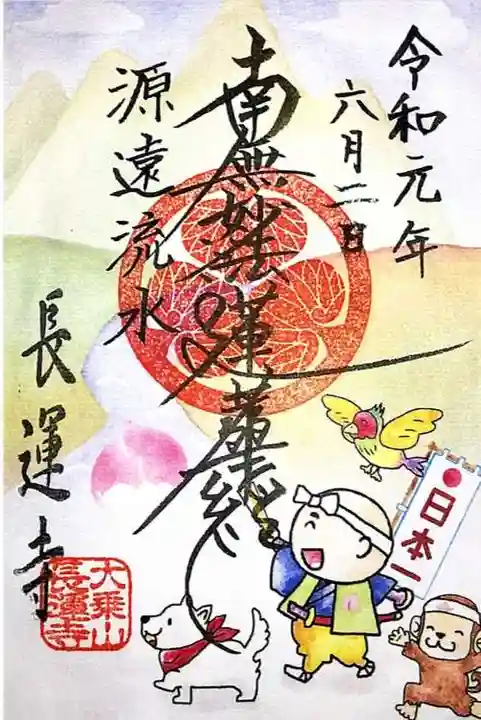 令和元年
六月二日
南無妙法蓮華経
源遠流水
長運寺
大乗山
長運寺
日本一